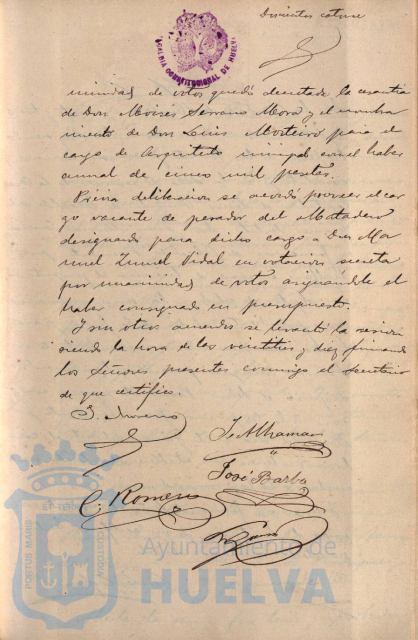 Doscientos catorce
ALCALDIA CONSTITUCIONAL DE HUELVA
nimidad de votos quedó decretada la cesantía
de Don Moisés Serrano Mora y el nombra
miento de Don Luis Mosteiro para el
cargo de Arquitecto municipal con el haber
anual de cinco mil pesetas.
Previa deliberacion se acordó proveer el car
go vacante de pesador del Matadero
designando para dicho cargo a Don Ma
nuel Vidal en votacion secreta
por unanimidad de votos asignandole el
haber consignado en presupuesto.
Y sin otros acuerdos se levantó la sesion
siendo la hora de las veintitres y diez firmando
los Señores presentes conmigo el Secretario
de que certifico.
J. Moreno
José Barba
C. Romero
PORTUS MARIS
ET TERRE CUSTODIA
Ayuntamiento de
HUELVA